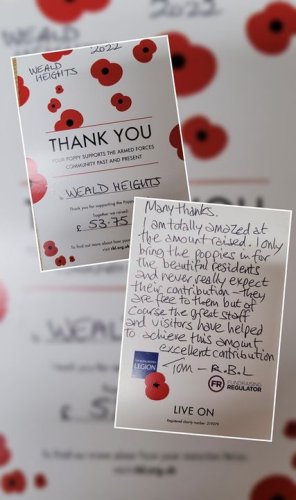 2022
WEALD
HEIGHTS
THANK YOU
YOUR POPPY SUPPORTS THE ARMED FORCES
COMMUNITY PAST AND PRESENT
To WEALD HEIGHTS
Thank you for supporting the Poppy
Together we raised
£ 53-75
To find out more about how your
visit rbl.org.uk
Many thanks.
I am totally amazed at
the amount raised. I only
bring the poppies in for
the beautiful residents
and never really expect
their contribution - they
are free to them but of
course the great staff
and visitors have helped
to achieve this amount
excellent contribution
Tom - R.B.L
LEGION
FR FUNDRAISING
REGULATOR
LIVE ON
Registered charity number: 219279